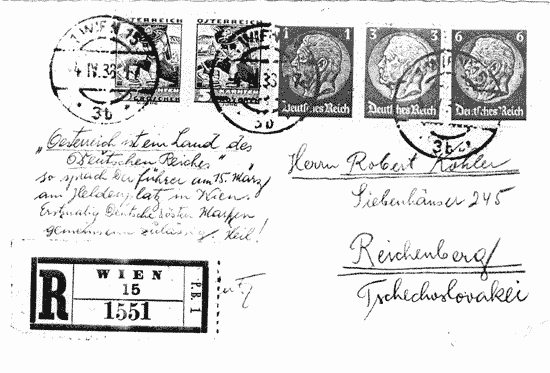 WIEN 15
4.IV.38-17
3b
ÖSTERREICH
ÖSTERREICH
KÄRNTEN
GROSCHEN
1 1
Deutsches Reich
3 3
Deutsches Reich
6 6
Deutsches Reich
3b
3b
„Oesterreich ist ein Land des
Deutschen Reiches"
so sprach der Führer am 15. März
am Heldenplatz in Wien.
Erstmalig Deutsche u. österr. Marken
gemeinsam zulässig. Heil!
Herrn Robert Köhler
Siebenhäuser 245
Reichenberg/
Tschechoslovakei
R
WIEN
15
1551
P.B. I